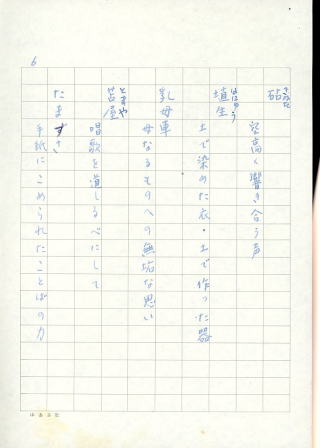 6
砧 きぬた
空高く響き合う声
埴生 はにゅう
土で染めた衣・土で作った器
乳母車
母なるものへの無垢な思い
苫屋 とまや
唱歌を道しるべにして
たまずさ
手紙にこめられたことばの力